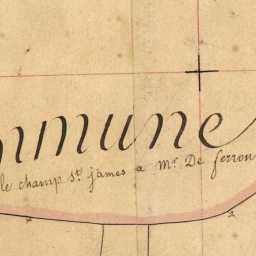 mmune
le champ St. james a Mr. De ferron